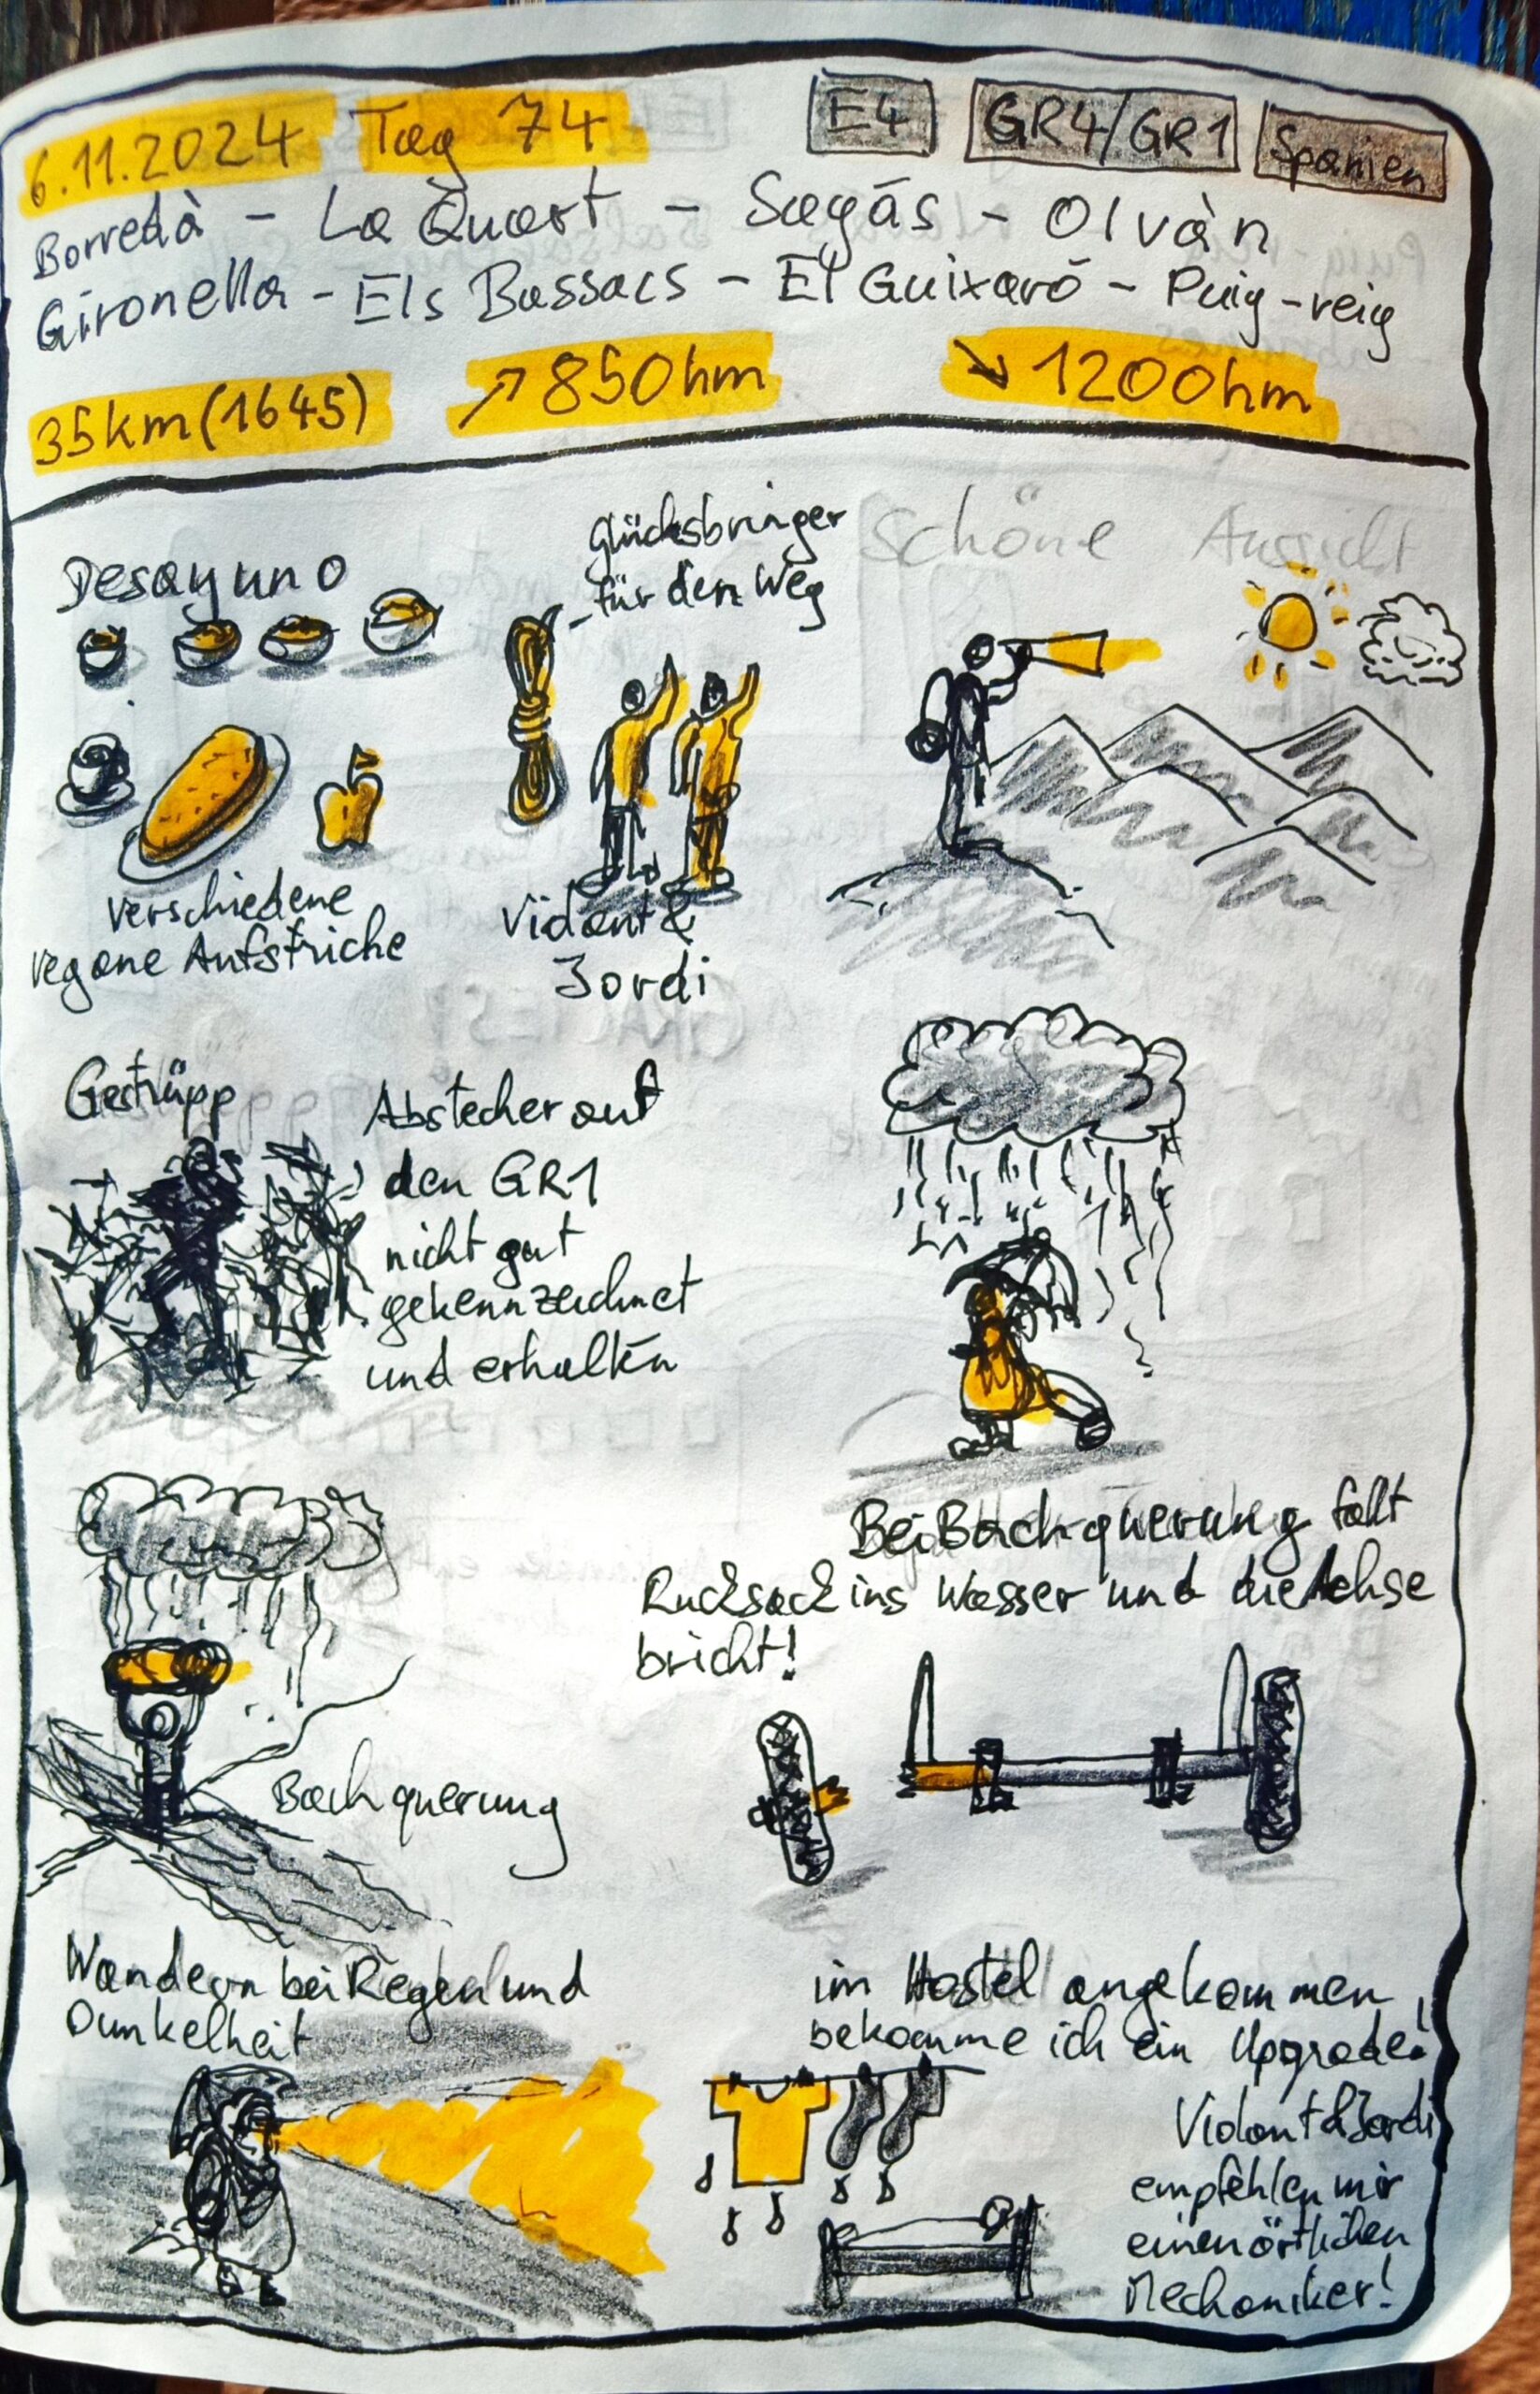 6.11.2024 Tag 74 E4 GR4/GR1 Spanien
Borredà - La Quart - Sagás - Olvàn
Gironella - Els Bassacs - El Guixaró - Puig-reig
35km (1645) ↗ 850hm ↘ 1200hm
Desayuno
verschiedene
vegane Aufstriche
Glücksbringer
für den Weg
Vidant &
Jordi
Schöne Aussicht
Gestrüpp
Abstecher auf
den GR1
nicht gut
gekennzeichnet
und erhalten
Bachquerung
Bei Bachquerung fällt
Rucksack ins Wasser und die Achse
bricht!
Wandern bei Regen und
Dunkelheit
im Hostel angekommen
bekomme ich ein Upgrade!
Vidant & Jordi
empfehlen mir
einen örtlichen
Mechaniker!